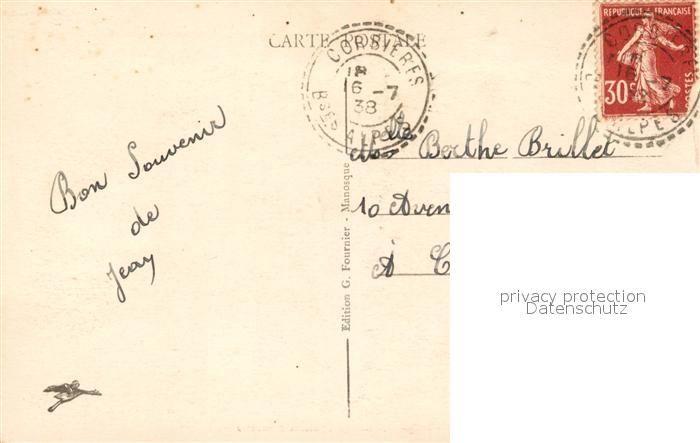 CARTE POSTALE
CORBIÈRES
18
16 -7
38
BSES ALPES
RÉPUBLIQUE FRANÇAISE
30c
POSTES
Bon Souvenir
de
Jeay
Edition G. Fournier - Manosque
Melle Berthe Brillet
10 Aven
À C
privacy protection
Datenschutz